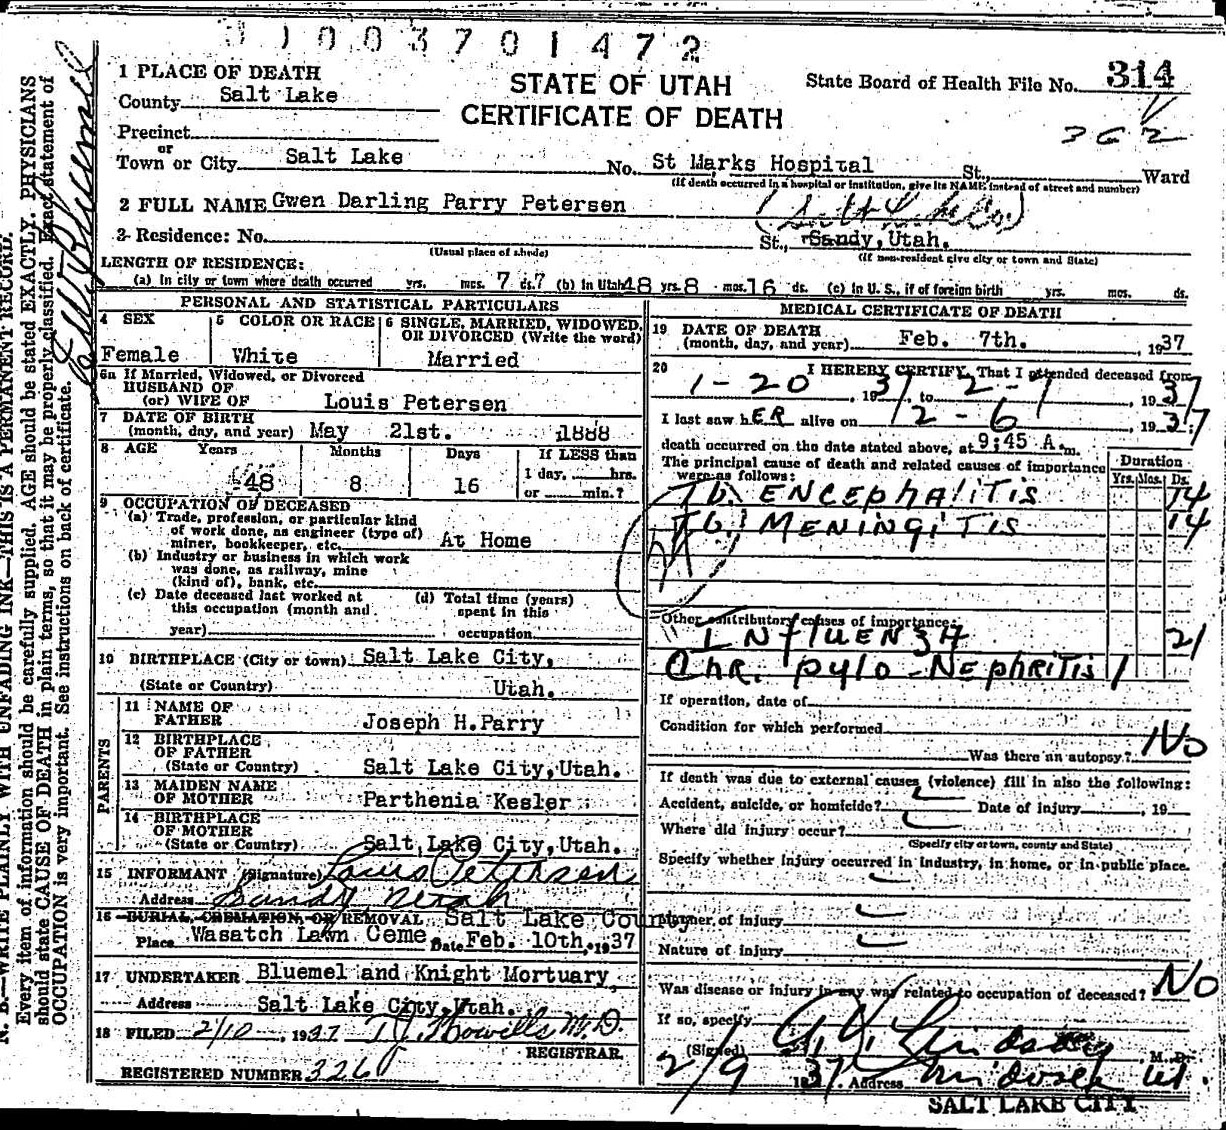 01003701472
STATE OF UTAH
CERTIFICATE OF DEATH
State Board of Health File No. 314
362
1 PLACE OF DEATH
County Salt Lake
Precinct
or
Town or City Salt Lake No. St Marks Hospital St., Ward
(If death occurred in a hospital or institution, give its NAME instead of street and number)
2 FULL NAME Gwen Darling Parry Petersen
(Salt Lake Co)
3 Residence: No. St., Sandy, Utah.
(Usual place of abode) (If non-resident give city or town and State)
LENGTH OF RESIDENCE:
(a) In city or town where death occurred yrs. mos. 7 ds. 7 (b) In Utah 48 yrs. 8 mos. 16 ds. (c) In U. S., if of foreign birth yrs. mos. ds.
PERSONAL AND STATISTICAL PARTICULARS
4 SEX
Female
5 COLOR OR RACE
White
6 SINGLE, MARRIED, WIDOWED, OR DIVORCED (Write the word)
Married
6a If Married, Widowed, or Divorced
HUSBAND OF
(or) WIFE OF Louis Petersen
7 DATE OF BIRTH
(month, day, and year) May 21st. 1888
8 AGE Years Months Days If LESS than
48 8 16 1 day, hrs.
or min.?
9 OCCUPATION OF DECEASED
(a) Trade, profession, or particular kind
of work done, as engineer (type of)
miner, bookkeeper, etc. At Home
(b) Industry or business in which work
was done, as railway, mine
(kind of), bank, etc.
(c) Date deceased last worked at
this occupation (month and
year)
(d) Total time (years)
spent in this
occupation
10 BIRTHPLACE (City or town) Salt Lake City,
(State or Country) Utah.
PARENTS
11 NAME OF
FATHER Joseph H. Parry
12 BIRTHPLACE
OF FATHER
(State or Country) Salt Lake City, Utah.
13 MAIDEN NAME
OF MOTHER Parthenia Kesler
14 BIRTHPLACE
OF MOTHER
(State or Country) Salt Lake City, Utah.
15 INFORMANT (Signature) Louis Petersen
Address Sandy Utah
16 BURIAL, CREMATION, OR REMOVAL Salt Lake County
Place Wasatch Lawn Ceme Date Feb. 10th, 1937
17 UNDERTAKER Bluemel and Knight Mortuary
Address Salt Lake City, Utah.
18 FILED 2/10, 1937 T. J. Howells M.D.
REGISTRAR.
REGISTERED NUMBER 3260
MEDICAL CERTIFICATE OF DEATH
19 DATE OF DEATH
(month, day, and year) Feb. 7th. , 1937
20 I HEREBY CERTIFY, That I attended deceased from
1-20, 1937, to 2-7, 1937
I last saw hER alive on 2-6, 1937;
death occurred on the date stated above, at 9:45 A.m.
The principal cause of death and related causes of importance
were as follows:
Duration
Yrs. Mos. Ds.
Tb. ENCEPhALITIS 14
Tb. MENINGITIS 14
Other contributory causes of importance:
INFLUENZA 21
Chr. pylo-NEphRITIS 1
If operation, date of
Condition for which performed
Was there an autopsy? No
If death was due to external causes (violence) fill in also the following:
Accident, suicide, or homicide? Date of injury , 19
Where did injury occur?
(Specify city or town, county and State)
Specify whether injury occurred in industry, in home, or in public place.
Manner of injury
Nature of injury
Was disease or injury in any way related to occupation of deceased? No
If so, specify
(Signed) Lindsay, M. D.
2/9 1937. Address Midvale Ut.
SALT LAKE CITY
N. B.—WRITE PLAINLY WITH UNFADING INK—THIS IS A PERMANENT RECORD.
Every item of information should be carefully supplied. AGE should be stated EXACTLY. PHYSICIANS
should state CAUSE OF DEATH in plain terms, so that it may be properly classified. Exact statement of
OCCUPATION is very important. See instructions on back of certificate.